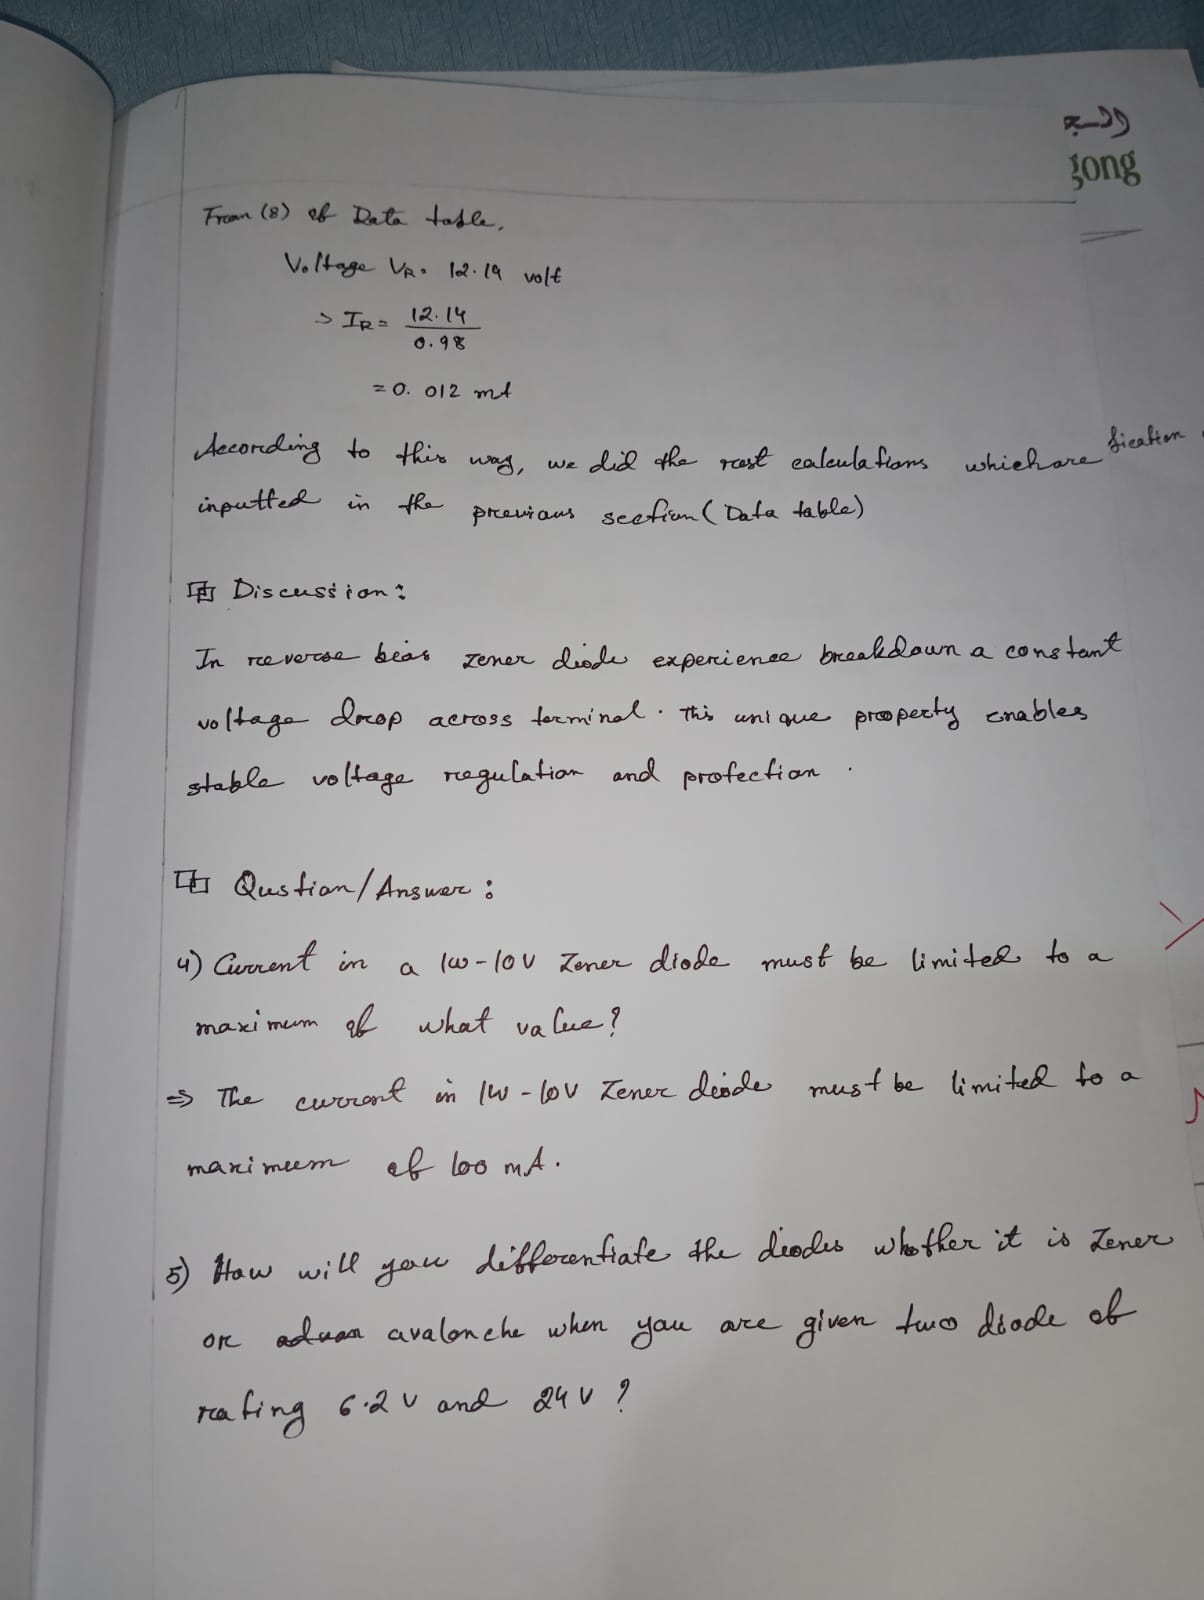 gong
From (8) of Data table,
Voltage VR = 12.14 volt
⇒ IR = 12.14 / 0.98
= 0.012 mA
According to this way, we did the rest calculations which are
fication
inputted in the previous section (Data table)
Discussion:
In reverse bias zener diode experience breakdown a constant
voltage drop across terminal. This unique property enables
stable voltage regulation and protection.
Qustion/Answer:
4) Current in a 1W-10V Zener diode must be limited to a
maximum of what value?
⇒ The current in 1W-10V Zener diode must be limited to a
maximum of 100 mA.
5) How will you differentiate the diodes whether it is Zener
or avalonche when you are given two diode of
rating 6.2 V and 24 V ?